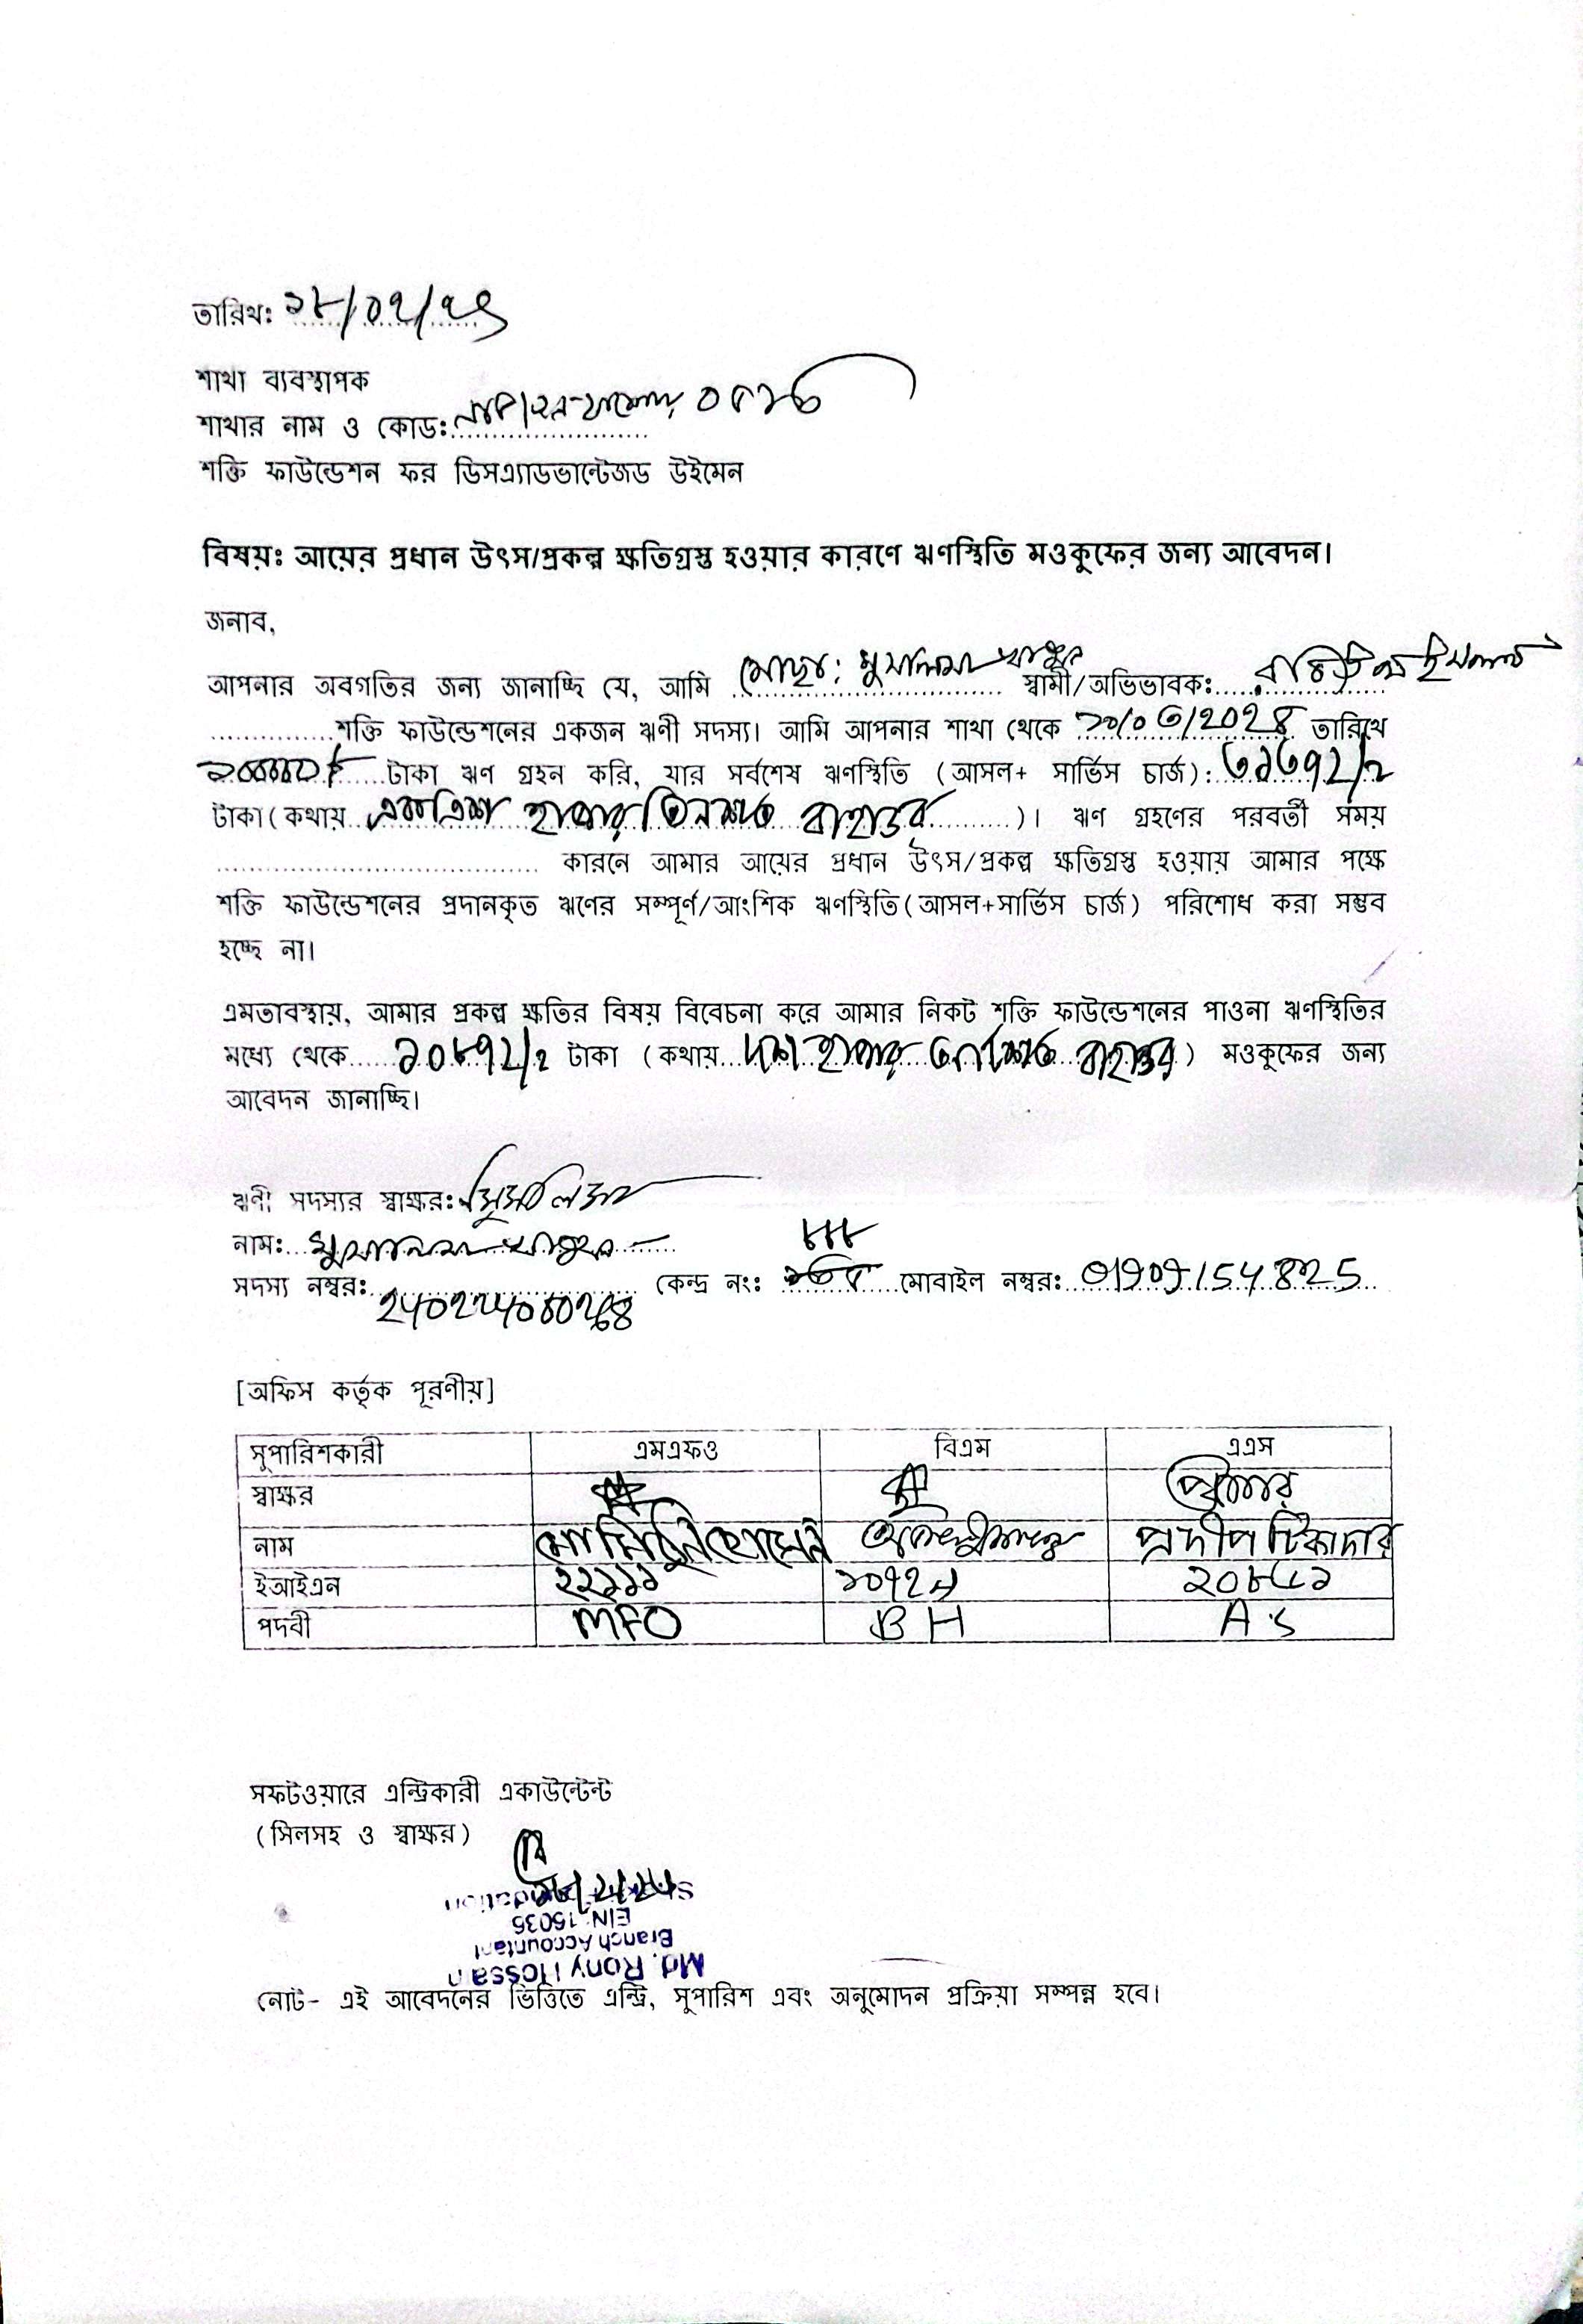 তারিখঃ ২৮/০৭/২৫
শাখা ব্যবস্থাপক
শাখার নাম ও কোডঃ
শক্তি ফাউন্ডেশন ফর ডিসএ্যাডভান্টেজড উইমেন
বিষয়ঃ আয়ের প্রধান উৎস/প্রকল্প ক্ষতিগ্রস্ত হওয়ার কারণে ঋণস্থিতি মওকুফের জন্য আবেদন।
জনাব,
আপনার অবগতির জন্য জানাচ্ছি যে, আমি মোছাঃ মুসলিমা খাতুন স্বামী/অভিভাবকঃ
শক্তি ফাউন্ডেশনের একজন ঋণী সদস্য। আমি আপনার শাখা থেকে তারিখে
টাকা ঋণ গ্রহন করি, যার সর্বশেষ ঋণস্থিতি (আসল+ সার্ভিস চার্জ): ৩১৩৭২/২
টাকা(কথায় একত্রিশ হাজার তিনশত বাহাত্তর)। ঋণ গ্রহণের পরবর্তী সময়
কারনে আমার আয়ের প্রধান উৎস/প্রকল্প ক্ষতিগ্রস্ত হওয়ায় আমার পক্ষে
শক্তি ফাউন্ডেশনের প্রদানকৃত ঋণের সম্পূর্ণ/আংশিক ঋণস্থিতি(আসল+সার্ভিস চার্জ) পরিশোধ করা সম্ভব
হচ্ছে না।
এমতাবস্থায়, আমার প্রকল্প ক্ষতির বিষয় বিবেচনা করে আমার নিকট শক্তি ফাউন্ডেশনের পাওনা ঋণস্থিতির
মধ্যে থেকে টাকা (কথায় হাজার বাহাত্তর) মওকুফের জন্য
আবেদন জানাচ্ছি।
ঋণী সদস্যর স্বাক্ষরঃ মুসলিমা
নামঃ মুসলিমা খাতুন
সদস্য নম্বরঃ কেন্দ্র নংঃ ৮৮৮ মোবাইল নম্বরঃ 01909154825
[অফিস কর্তৃক পূরণীয়]
সুপারিশকারী এমএফও বিএম এএস
স্বাক্ষর
নাম প্রদীপ টিকাদার
ইআইএন ২২১১১ ২০৮৫১
পদবী MFO BH A.S
সফটওয়ারে এন্ট্রিকারী একাউন্টেন্ট
(সিলসহ ও স্বাক্ষর)
Md. Rony Hossain
Branch Accountant
EIN: 15035
Shakti Foundation
নোট- এই আবেদনের ভিত্তিতে এন্ট্রি, সুপারিশ এবং অনুমোদন প্রক্রিয়া সম্পন্ন হবে।